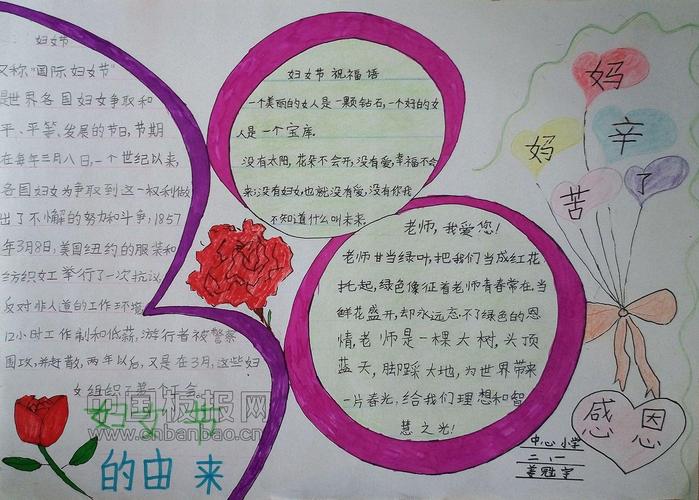 妇女节
又称“国际妇女节”
是世界各国妇女争取和
平、平等、发展的节日,节期
在每年三月八日,一个世纪以来,
各国妇女为争取到这一权利做
出了不懈的努力和斗争,1857
年3月8日,美国纽约的服装和
纺织女工举行了一次抗议
反对非人道的工作环境
12小时工作制和低薪,游行者被警察
围攻,并赶散,两年以后,又是在3月,这些妇
女组织了第一个工会
妇女节
的由来
中国板报网
www.cnbanbao.cn
妇女节祝福语
一个美丽的女人是一颗钻石,一个好的女
人是一个宝库.
没有太阳,花朵不会开,没有爱,幸福不会
来;没有妇女,也就没有爱,没有你我
不知道什么叫未来.
老师,我爱您!
老师甘当绿叶,把我们当成红花
托起,绿色像征着老师青春常在,当
鲜花盛开,却永远忘不了绿色的恩
情,老师是一棵大树,头顶
蓝天,脚踩大地,为世界带来
一片春光,给我们理想和智
慧之光!
妈
妈
辛
苦
了
感恩
中心小学
二、一